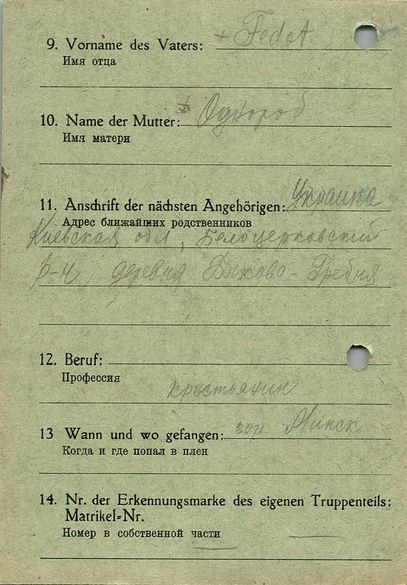 9. Vorname des Vaters: + Fedot
Имя отца
10. Name der Mutter: + Одно​род
Имя матери
11. Anschrift der nächsten Angehörigen: Украина
Адрес ближайших родственников
Киевская обл, Белоцерковский
р-н, деревня Быково-Гребля
12. Beruf:
Профессия
крестьянин
13 Wann und wo gefangen: гор. Минск
Когда и где попал в плен
14. Nr. der Erkennungsmarke des eigenen Truppenteils:
Matrikel-Nr.
Номер в собственной части